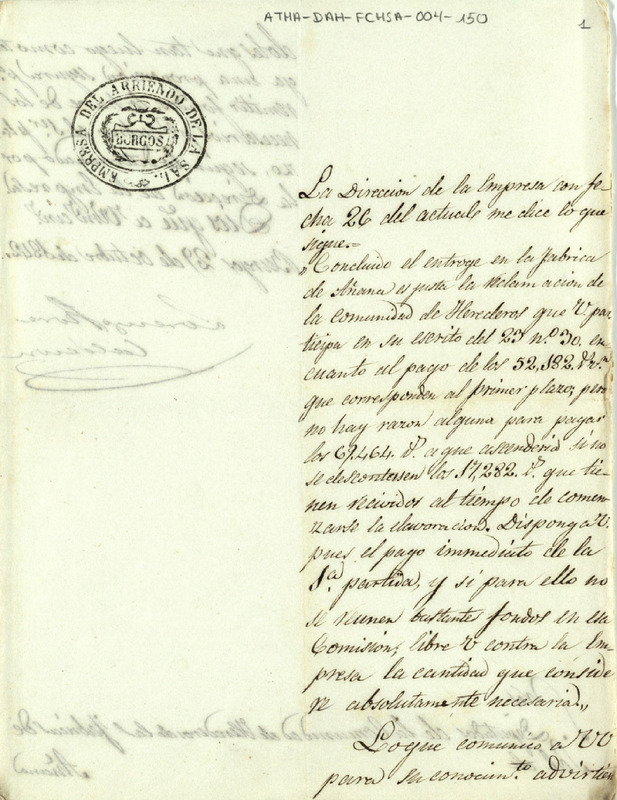 ATHA-DAH-FCHSA-004-150
1
EMPRESA DEL ARRIENDO DE LA SAL.
BURGOS
La Direccion de la Empresa con fe-
cha 26 del actual me dice lo que
sigue.=
"Concluido el entroge en la fabrica
de Añana es justa la reclamacion de
la comunidad de Herederos que V. par-
ticipa en su escrito del 23 n.º 30. en
cuanto al pago de los 52,182 r.s v.n
que corresponden al primer plazo; pero
no hay razon alguna para pagar
los 69.464. r.s a que ascenderia si no
se descontasen los 17,282. r.s que tie-
nen recividos al tiempo de comen-
zarse la elavoracion. Disponga V.
pues el pago immediato de la
1.ª partida, y si para ello no
se reunen bastantes fondos en esa
Comision, libre V contra la Em-
presa la cantidad que conside-
re absolutamente necesaria„
Lo que comunico a VV
para su conocim.to advirtien